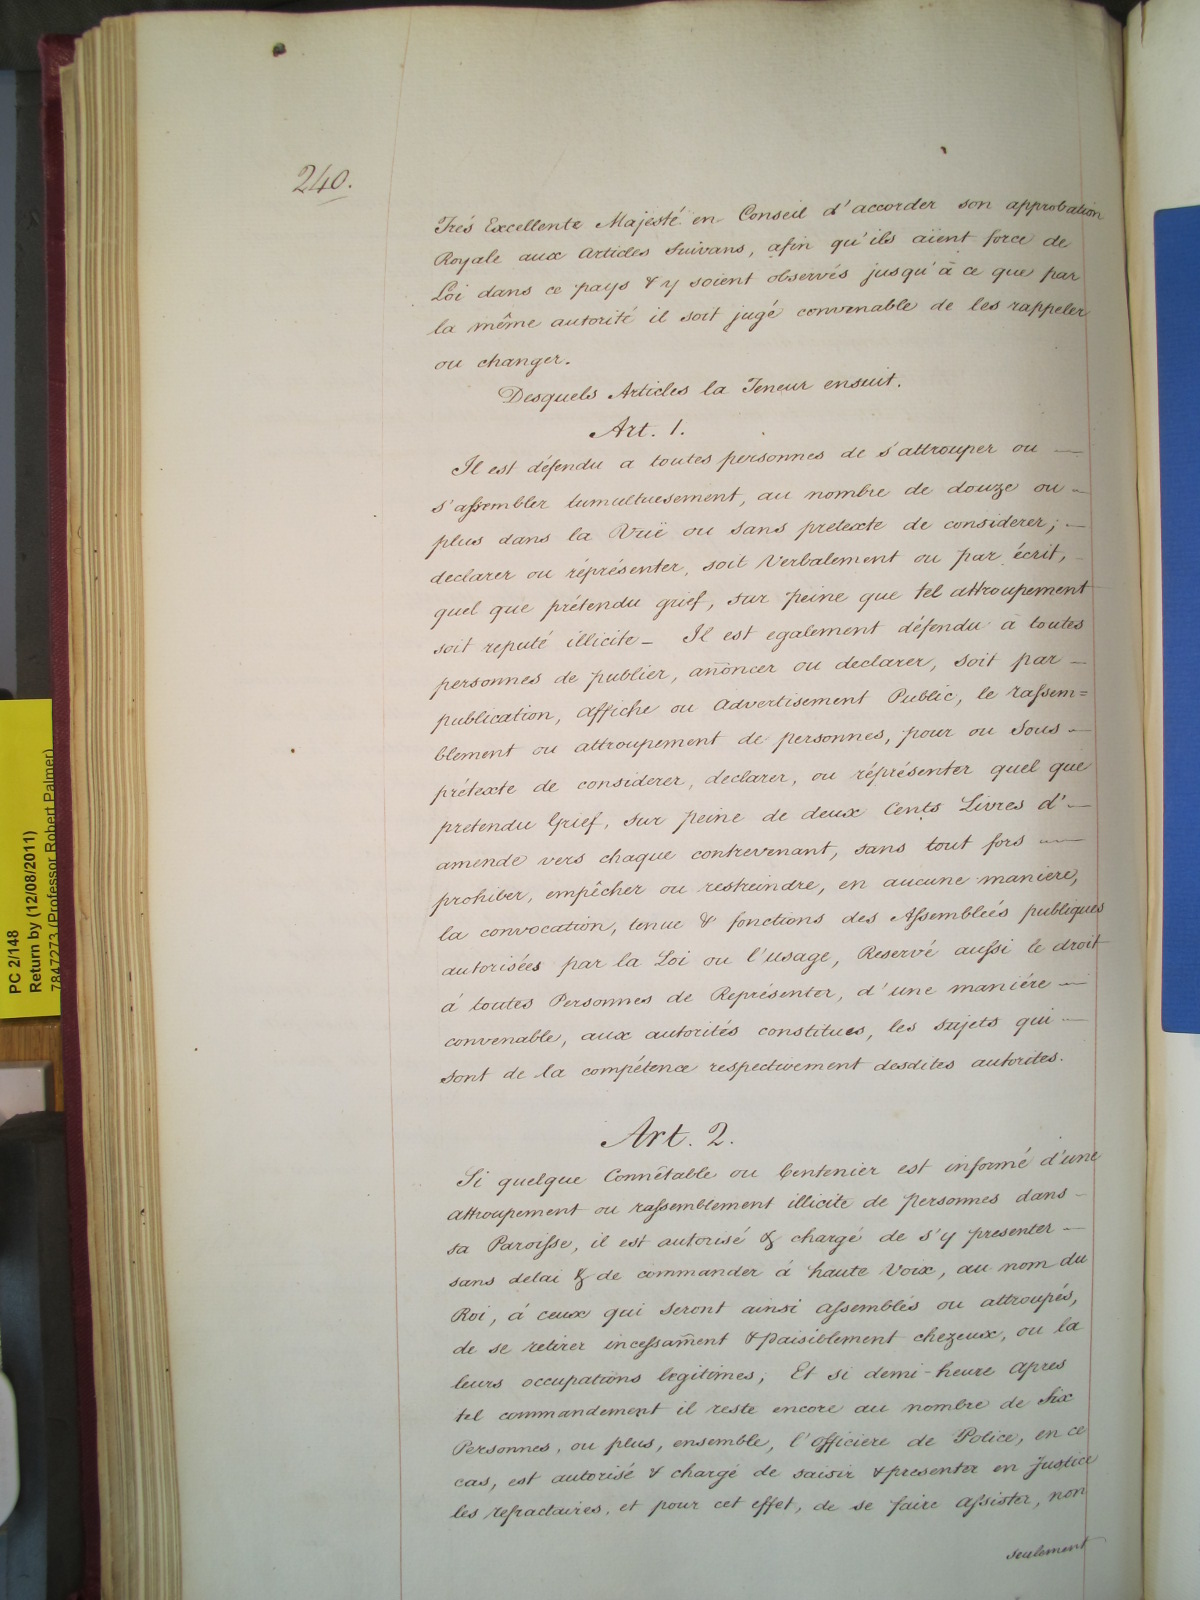 240.
Trés Excellente Majesté en Conseil d'accorder son approbation
Royale aux Articles Suivans, afin qu'ils aïent force de
Loi dans ce pays & y soient observés jusqu'à ce que par
la même autorité il soit jugé convenable de les rappeler
ou changer.
Desquels Articles la Teneur ensuit.
Art. 1.
Il est défendu a toutes personnes de s'attrouper ou —
s'assembler tumultuesement, au nombre de douze ou —
plus dans la Vuë ou sans pretexte de considerer; —
declarer ou réprésenter, soit Verbalement ou par écrit,
quel que prétendu grief, sur peine que tel attroupement
soit reputé illicite — Il est egalement défendu à toutes
personnes de publier, anoncer ou declarer, soit par —
publication, affiche ou Advertisement Public, le rassem=
blement ou attroupement de personnes, pour ou Sous —
prétexte de considerer, declarer, ou réprésenter quel que
pretendu Grief, sur peine de deux Cents Livres d'—
amende vers chaque contrevenant, sans tout fors —
prohiber, empêcher ou restreindre, en aucune maniere,
la convocation, tenue & fonctions des Assembleés publiques
autorisées par la Loi ou l'usage, Reservé aussi le droit
á toutes Personnes de Représenter, d'une maniére —
convenable, aux autorités constitues, les sujets qui —
sont de la compétence respectivement desdites autorites.
Art. 2.
Si quelque Connêtable ou Centenier est informé d'une
attroupement ou rassemblement illicite de personnes dans —
sa Paroisse, il est autorisé & chargé de s'y presenter —
sans delai & de commander á haute Voix, au nom du
Roi, á ceux qui seront ainsi assemblés ou attroupés,
de se retirer incessament & paisiblement chezeux, ou la
leurs occupations legitimes, Et si demi-heure apres
tel commandement il reste encore au nombre de Six
Personnes, ou plus, ensemble, l'officiere de Police, en ce
cas, est autorisé & chargé de saisir & presenter en Justice
les refractaires, et pour cet effet, de se faire assister, non
seulement
PC 2/148
Return by (12/08/2011)
7847273 (Professor Robert Palmer)